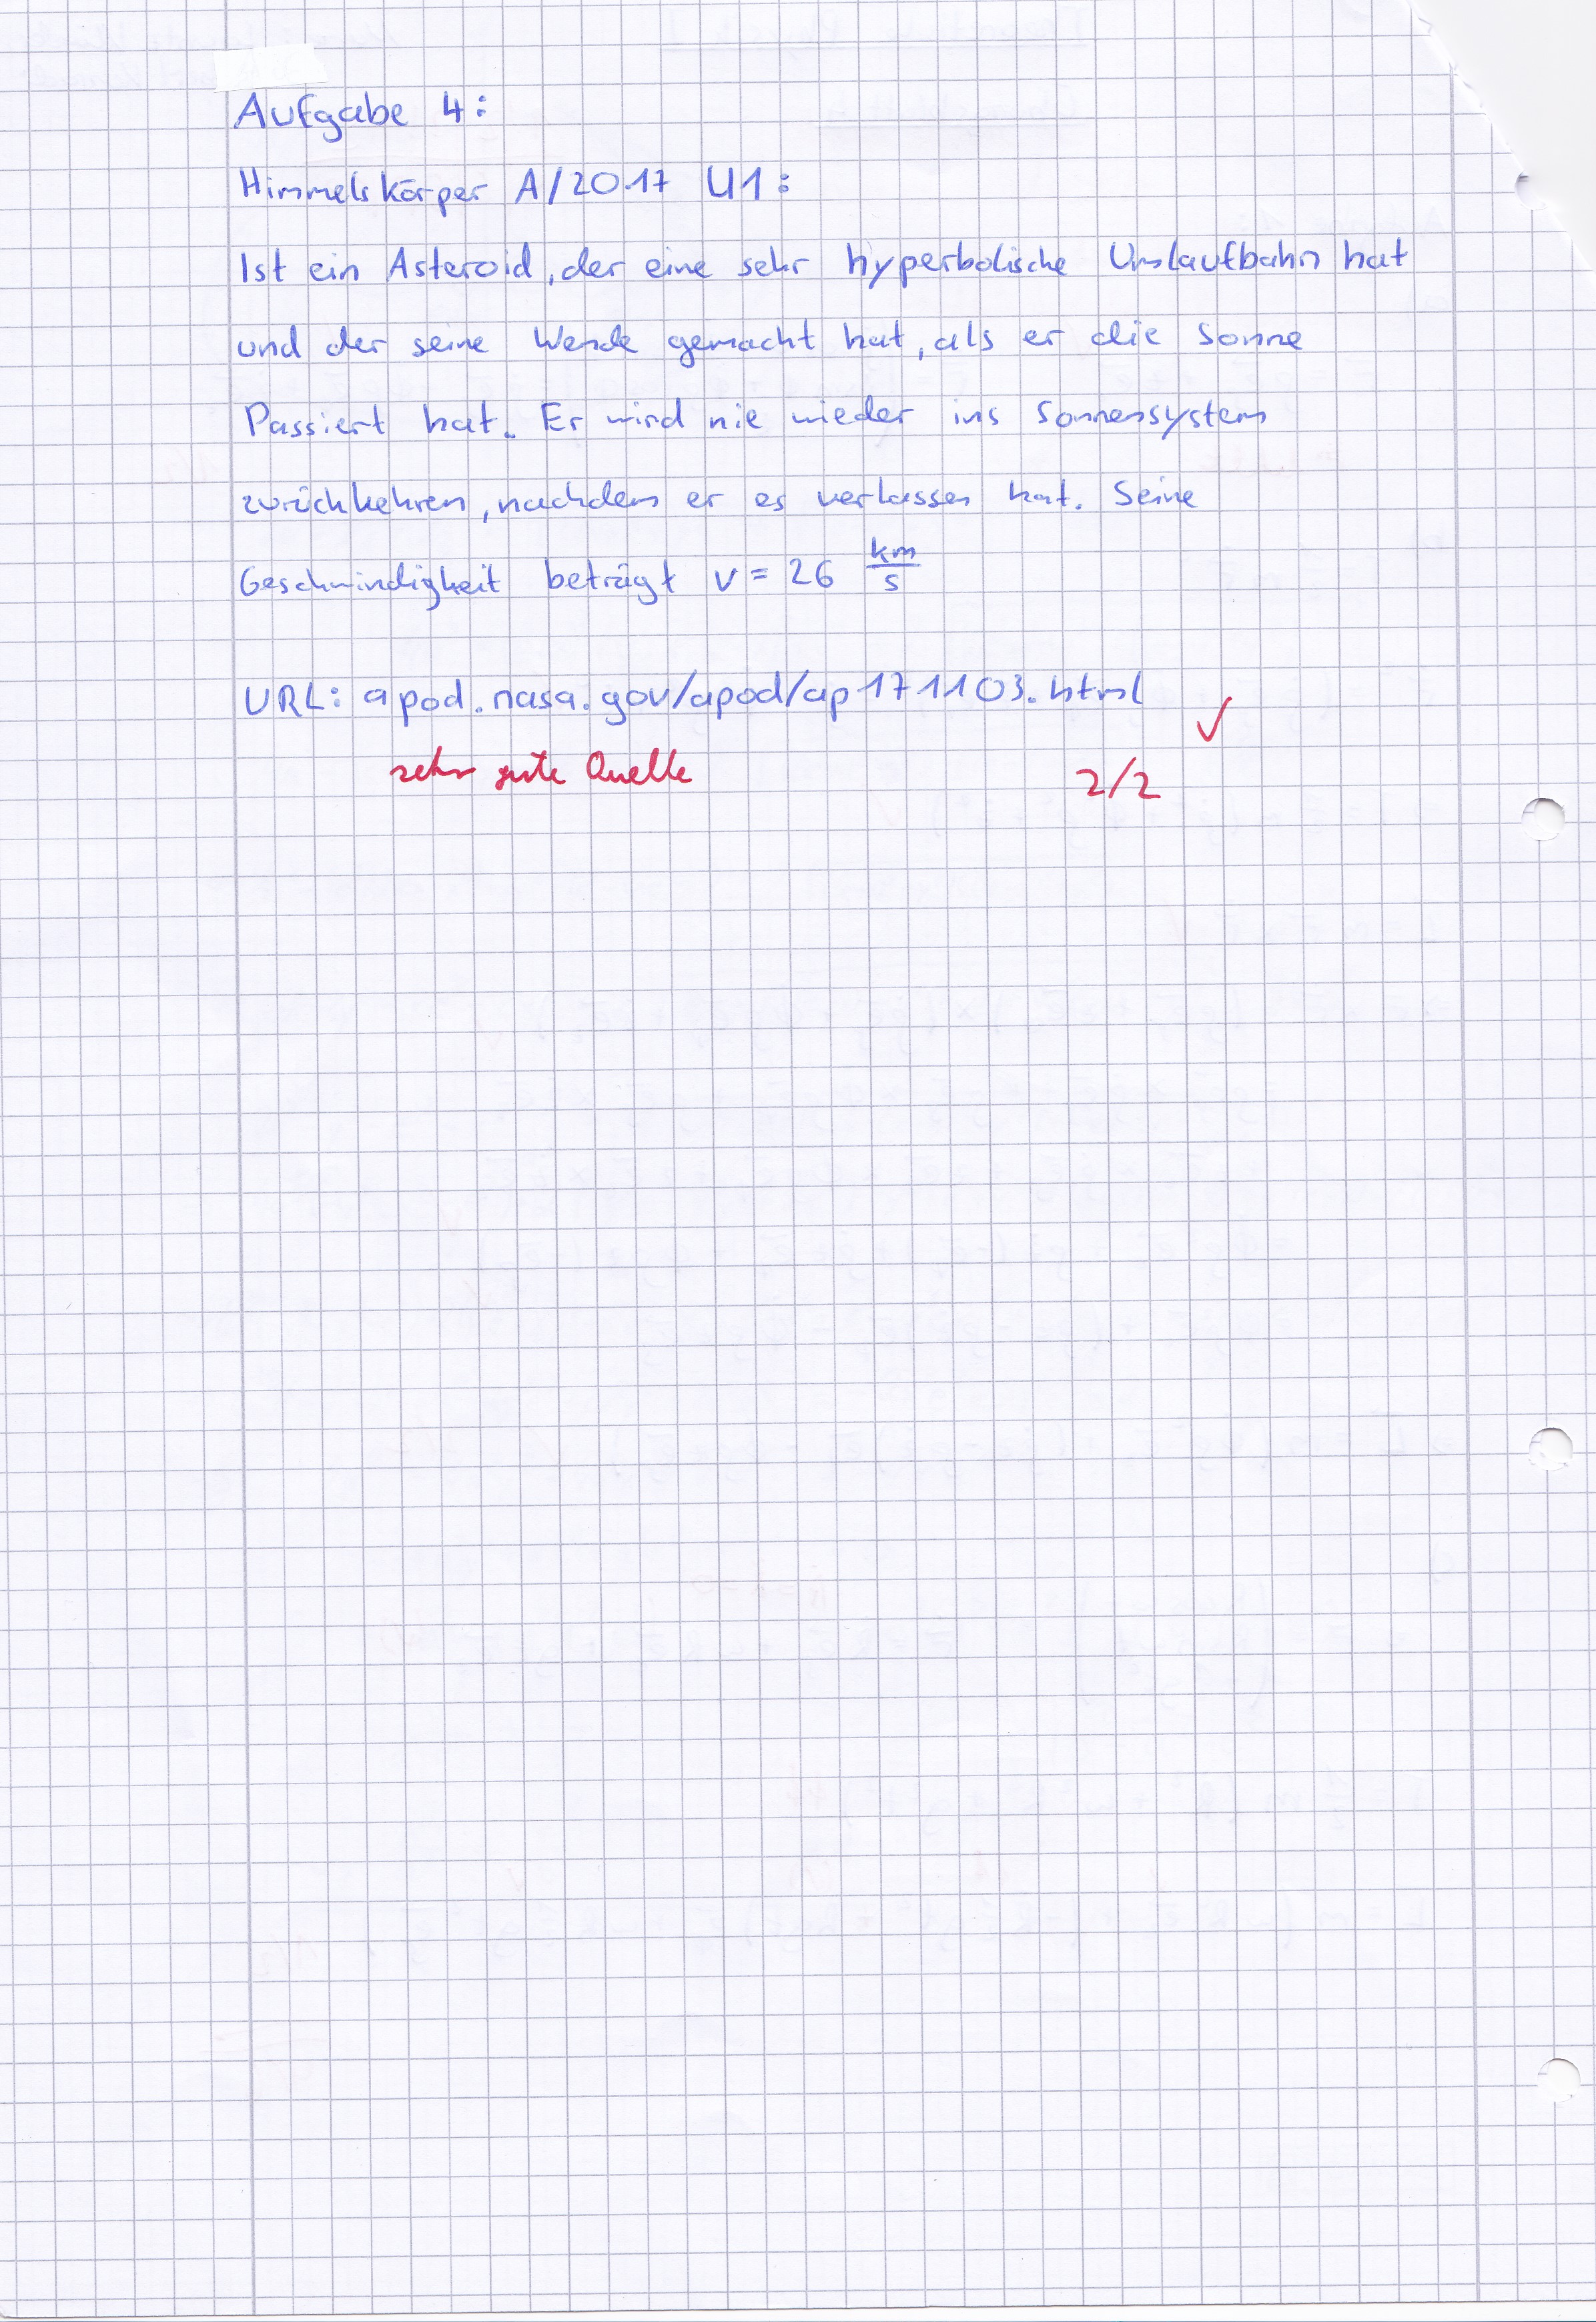 Aufgabe 4:
Himmelskörper A/2017 U1:
Ist ein Asteroid, der eine sehr hyperbolische Umlaufbahn hat
und der seine Wende gemacht hat, als er die Sonne
Passiert hat. Er wird nie wieder ins Sonnensystem
zurückkehren, nachdem er es verlassen hat. Seine
Geschwindigkeit beträgt v = 26 km/s
URL: apod.nasa.gov/apod/ap171103.html
✓
sehr gute Quelle 2/2